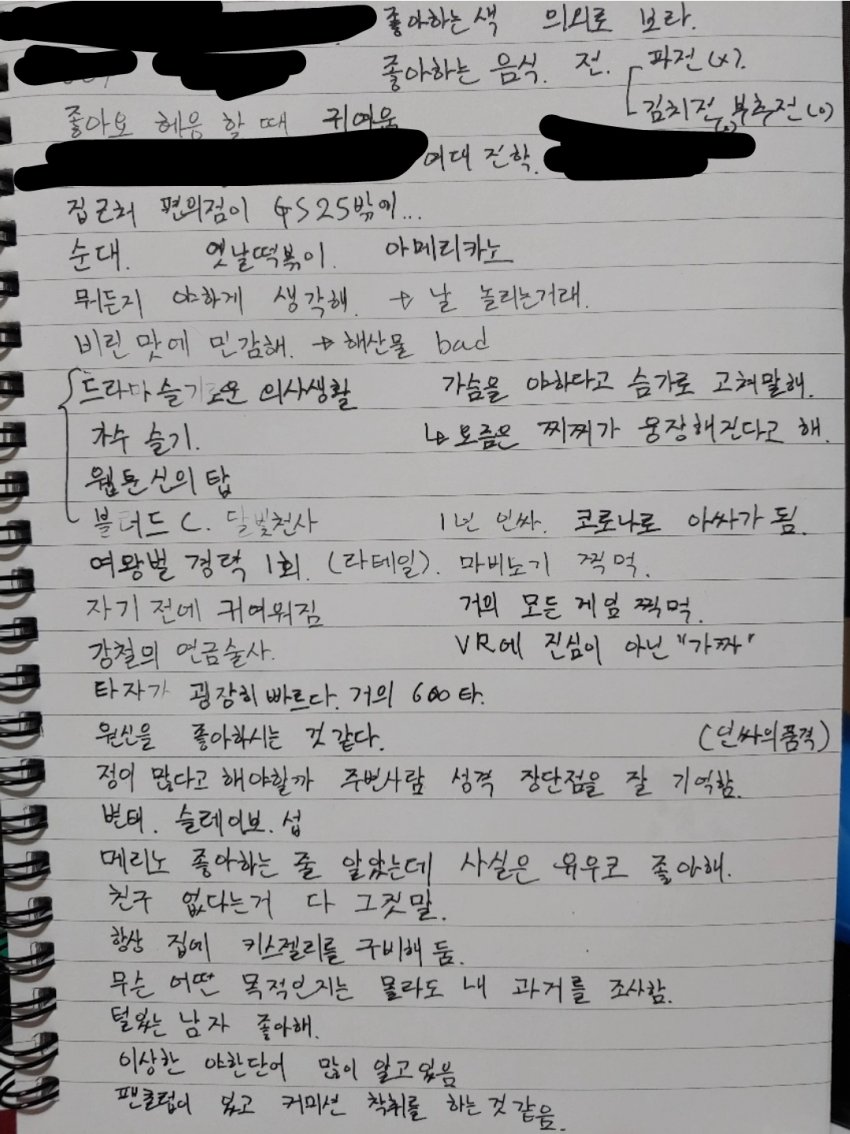 좋아하는색 의외로 보라.
좋아하는 음식. 전. 파전(x).
김치전, 부추전(o)
(o)
좋아요 헤응 할 때 귀여움
여대 진학.
집근처 편의점이 GS25밖에...
순대. 옛날떡볶이. 아메리카노
뭐든지 야하게 생각해. → 날 놀리는거래.
비린 맛에 민감해. → 해산물 bad
드라마 슬기로운 의사생활 가슴을 야하다고 슴가로 고쳐말해.
가수 슬기. ↳ 요즘은 찌찌가 웅장해진다고 해.
웹툰 신의 탑
블러드 C. 달빛천사 1년 인싸. 코로나로 아싸가 됨.
여왕벌 경력 1회. (라테일). 마비노기 찍먹.
자기 전에 귀여워짐 거의 모든 게임 찍먹.
강철의 연금술사. VR에 진심이 아닌 "가짜"
타자가 굉장히 빠르다. 거의 600타.
원신을 좋아하시는 것 같다. (인싸의품격)
정이 많다고 해야할까 주변사람 성격 장단점을 잘 기억함.
변태. 슬레이브. 섭
메리노 좋아하는 줄 알았는데 사실은 유우코 좋아해.
친구 없다는거 다 그짓말.
항상 집에 키스젤리를 구비해 둠.
무슨 어떤 목적인지는 몰라도 내 과거를 조사함.
털있는 남자 좋아해.
이상한 야한단어 많이 알고있음
팬클럽이 있고 커미션 착취를 하는것 같음.